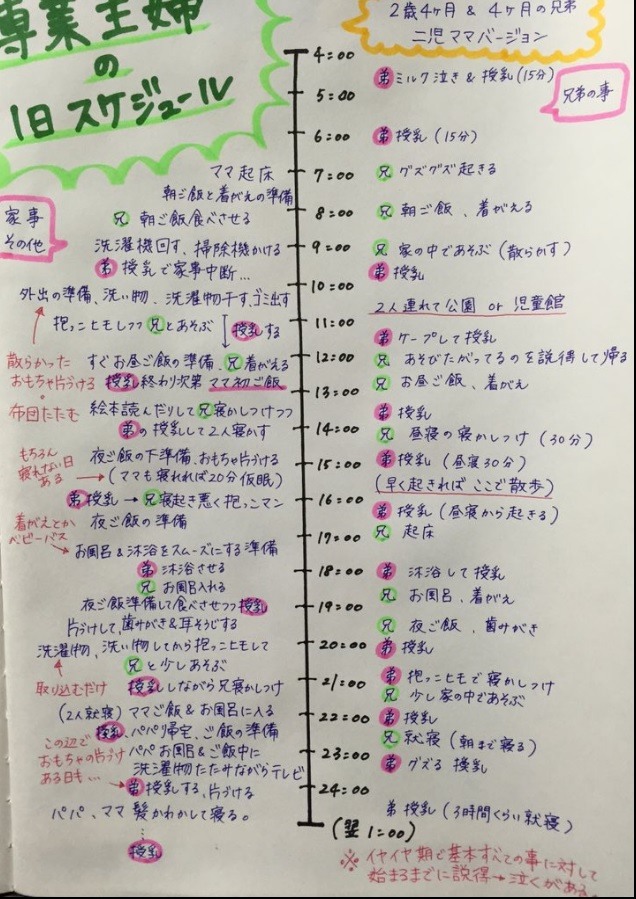 専業主婦
の
1日スケジュール
2歳4ヶ月 & 4ヶ月の兄弟
二児ママバージョン
家事
その他
兄弟の事
4:00
5:00
6:00
7:00
8:00
9:00
10:00
11:00
12:00
13:00
14:00
15:00
16:00
17:00
18:00
19:00
20:00
21:00
22:00
23:00
24:00
(翌 1:00)
ママ起床
朝ご飯と着がえの準備
兄 朝ご飯食べさせる
洗濯機回す、掃除機かける
弟 授乳で家事中断…
外出の準備、洗い物、洗濯物干す、ゴミ出す
抱っこヒモしつつ兄とあそぶ 授乳する
散らかった
おもちゃ片づける
すぐお昼ご飯の準備、兄着がえる
授乳終わり次第 ママ初ご飯
布団たたむ
絵本読んだりして兄寝かしつけつつ
弟の授乳して2人寝かす
もちろん
寝れない日
ある
夜ご飯の下準備、おもちゃ片づける
(ママも寝れれば20分仮眠)
弟授乳 → 兄寝起き悪く抱っこマン
着がえとか
ベビーバス
夜ご飯の準備
お風呂&沐浴をスムーズにする準備
弟 沐浴させる
兄 お風呂入れる
夜ご飯準備して食べさせつつ授乳
片づけして、歯みがき&耳そうじする
洗濯物、洗い物してから抱っこヒモして
兄と少しあそぶ
取り込むだけ
授乳しながら兄寝かしつけ
(2人就寝) ママご飯&お風呂に入る
授乳、パパ帰宅、ご飯の準備
この辺で
おもちゃの片づけ
ある日も…
パパお風呂&ご飯中に
洗濯物たたみながらテレビ
弟授乳する、片づける
パパ、ママ髪かわかして寝る。
授乳
弟 ミルク泣き & 授乳(15分)
弟 授乳(15分)
兄 グズグズ起きる
兄 朝ご飯、着がえる
兄 家の中であそぶ(散らかす)
弟 授乳
2人連れて公園 or 児童館
弟 ケープして授乳
兄 あそびたがってるのを説得して帰る
兄 お昼ご飯、着がえ
弟 授乳
兄 昼寝の寝かしつけ(30分)
弟 授乳(昼寝30分)
(早く起きればここで散歩)
弟 授乳(昼寝から起きる)
兄 起床
弟 沐浴して授乳
兄 お風呂、着がえ
兄 夜ご飯、歯みがき
弟 授乳
弟 抱っこヒモで寝かしつけ
兄 少し家の中であそぶ
弟 授乳
兄 就寝(朝まで寝る)
弟 グズる 授乳
弟 授乳(3時間くらい就寝)
※ イヤイヤ期で基本すべての事に対して
始まるまでに説得→泣くがある。